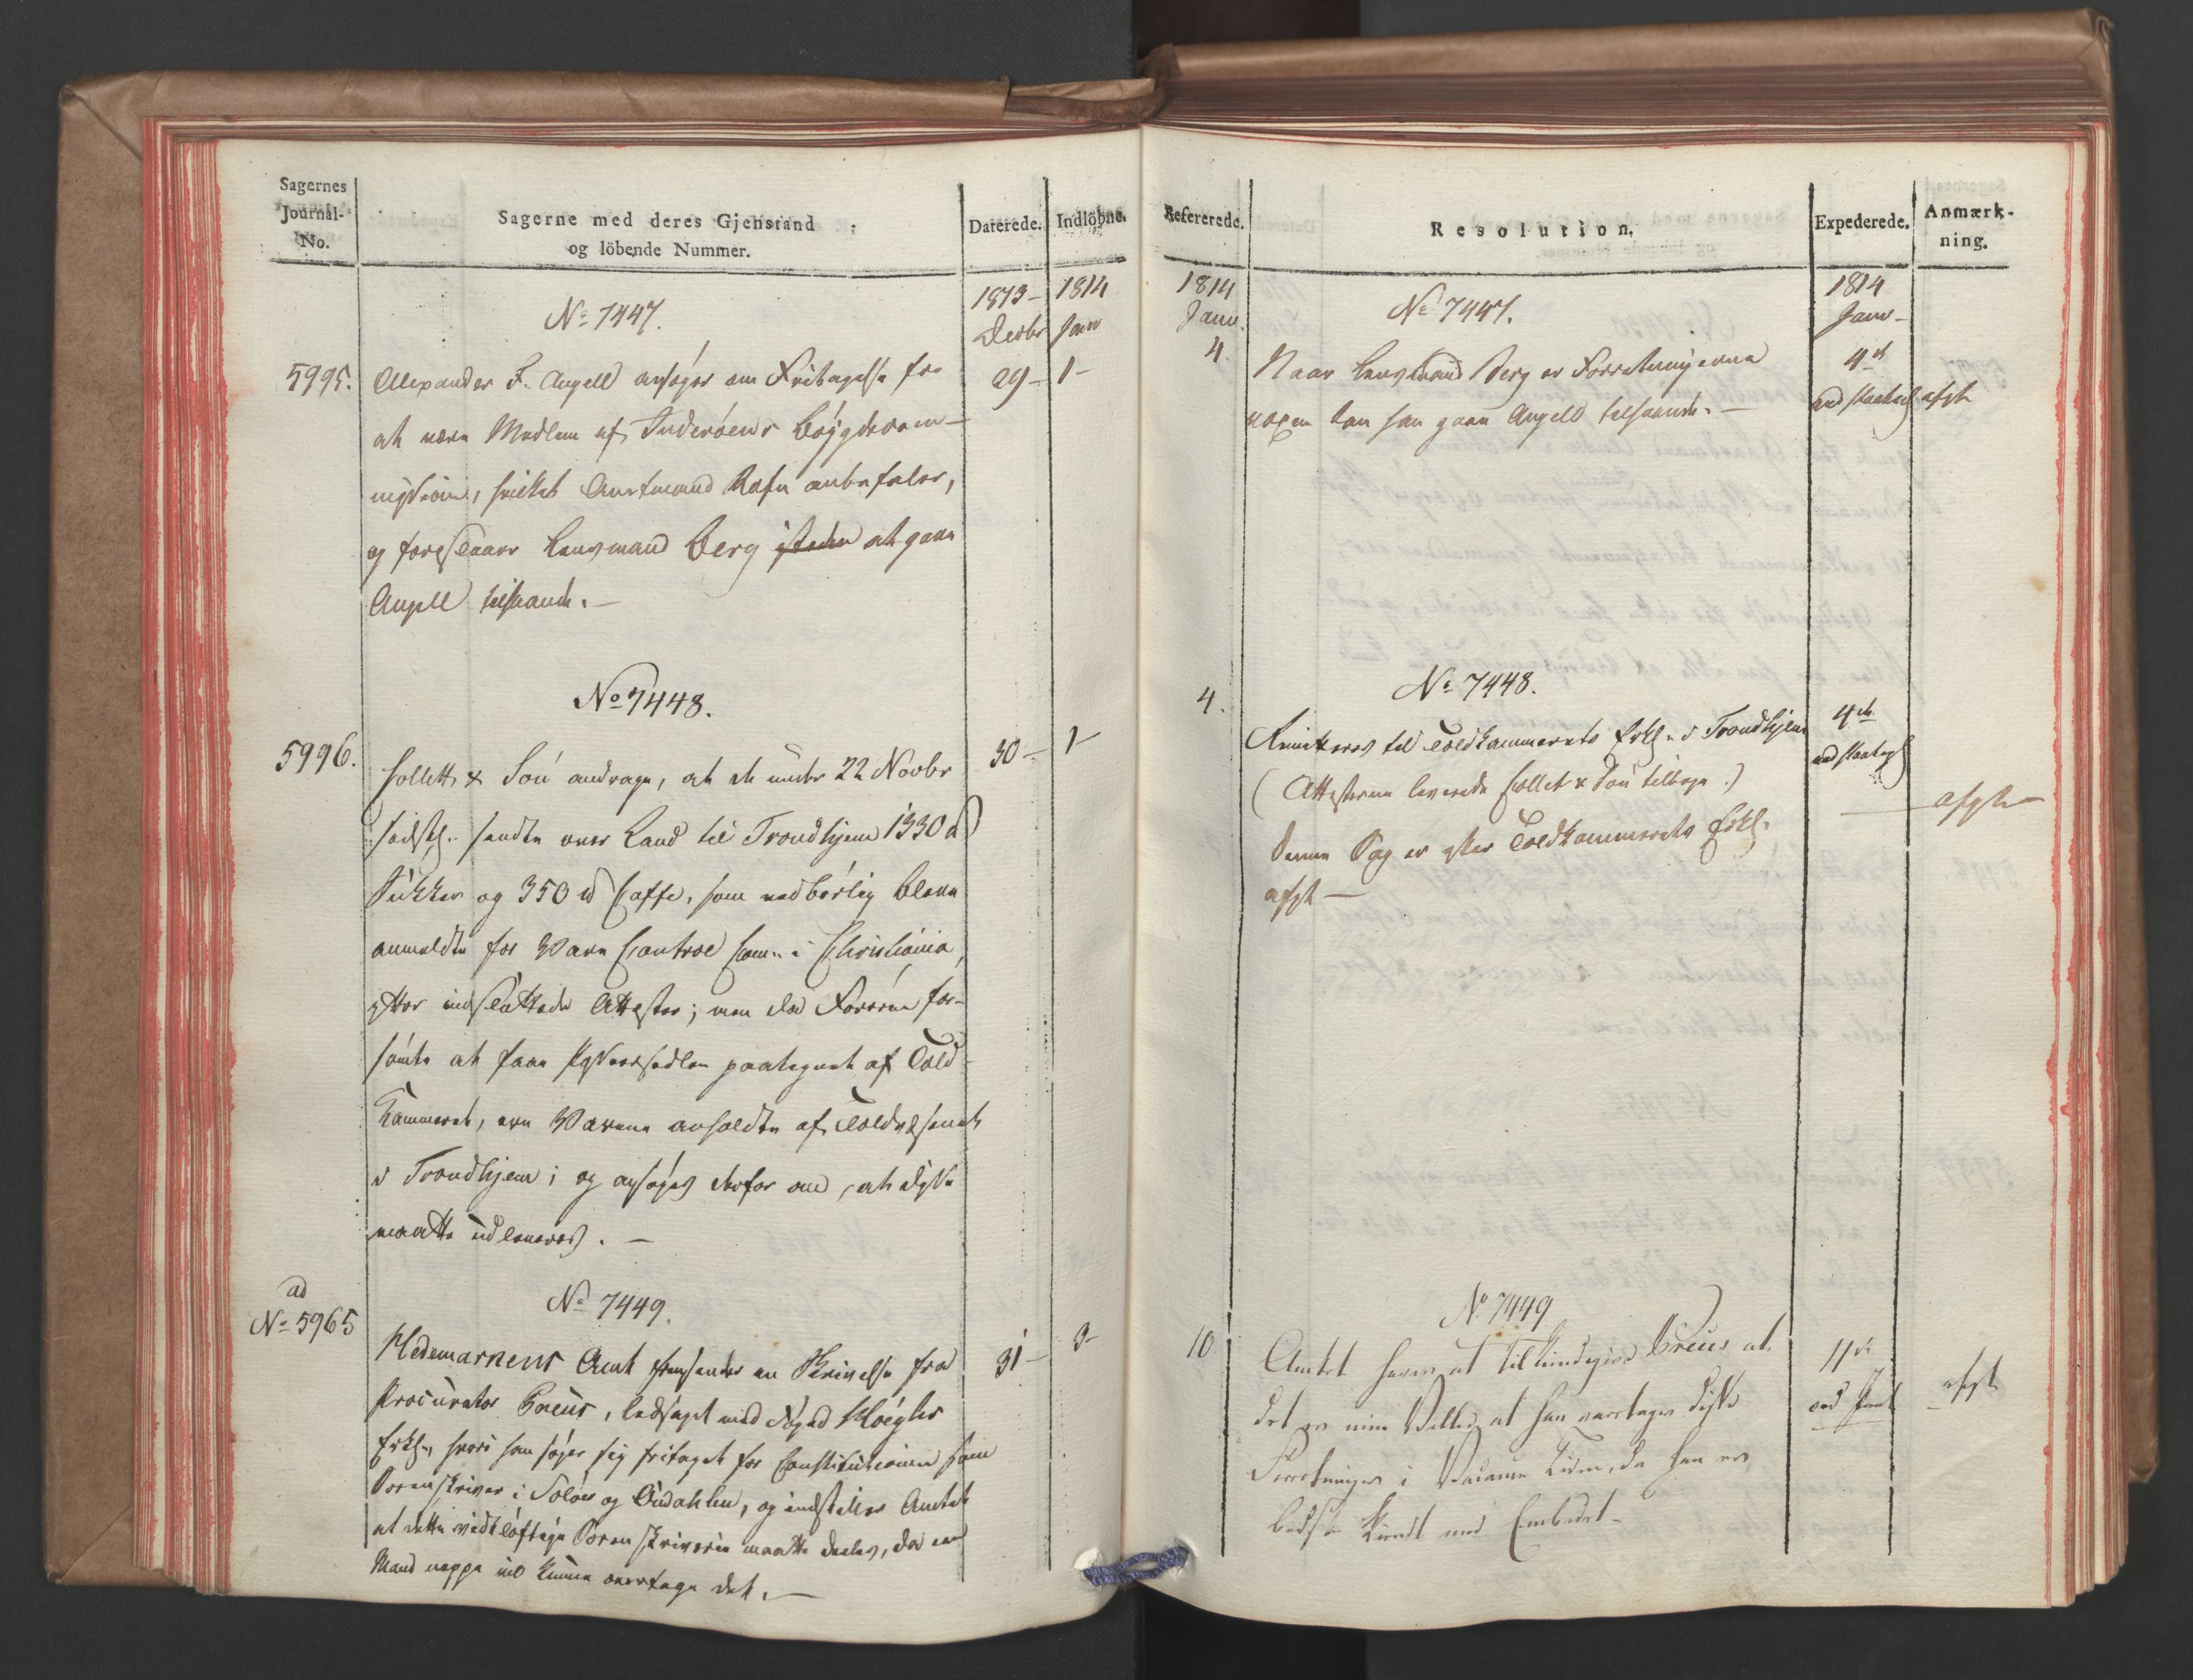 Sagernes
Journal-
No.
Sagerne med deres Gjenstand
og löbende Nummer.
Daterede.
Indlöbne.
1813
Decbr
1814
Janv
No 7447.
5995.
Alexander F. Angell ansøger om Fritagelse for
29 –
1 –
at være Medlem af Inderøens Bøygdecom-
mission, hvilket Amtmand Rafn anbefaler,
og foreslaaer Lensmand Berg isteden at gaae
Angell tilhaande. –
No 7448.
5996.
Collett & Søn andrage, at de under 22 Novbr
30 –
1 –
sidstl. sendte over Land til Trondhjem 1330 ℔
Sukker og 350 ℔ Caffe, som vedbørlig bleve
anmeldte for Vare Control Com. i Christiania,
efter indsluttede Attester; men da Førerne for-
sømte at faae Passeersedlen paategnet af Told-
kammeret, ere Varene anholdte af Toldvæsenet
i Trondhjem; og ansøges derfor om, at disse
maatte udleveres. –
ad
No 5965
No 7449.
Hedemarkens Amt fremsender en Skrivelse fra
31 –
3 –
Procurator Breus, ledsaget med
Erkl., hvori han søger sig fritaget for Constitutionen som
Sorenskriver i Soløer og Oudahlen, og indstiller Amtet
at dette vidtløftige Sorenskriverie maatte deeles, da een
Mand neppe vil kunne overtage det. –
Refererede.
Resolution.
Expederede.
Anmærk-
ning.
1814
Janv.
1814
Janv –
No 7447.
4
Naar Lensmand Berg er Forretningerne
4de
voxen kan han gaae Angell tilhaande. –
afgt
No 7448.
4.
Remitteres til Toldkammerets Erkl. i Trondhjem
4de
(Attesterne leverede Collet & Søn tilbage.)
afgt
Denne Sag er efter Toldkammerets Erkl.
afgt –
No 7449
10
Amtet haver at tilkiendegive Breus at
11te
afgt
det er min Villie, at han overtager disse
Forretninger i Vacance Tiden, da han er
bedst kiendt med Embedet –